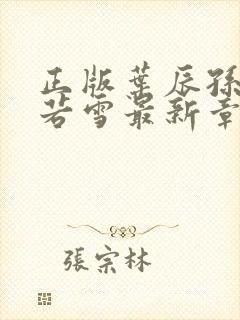 正版葉辰孫
若雪最新章
張宗林